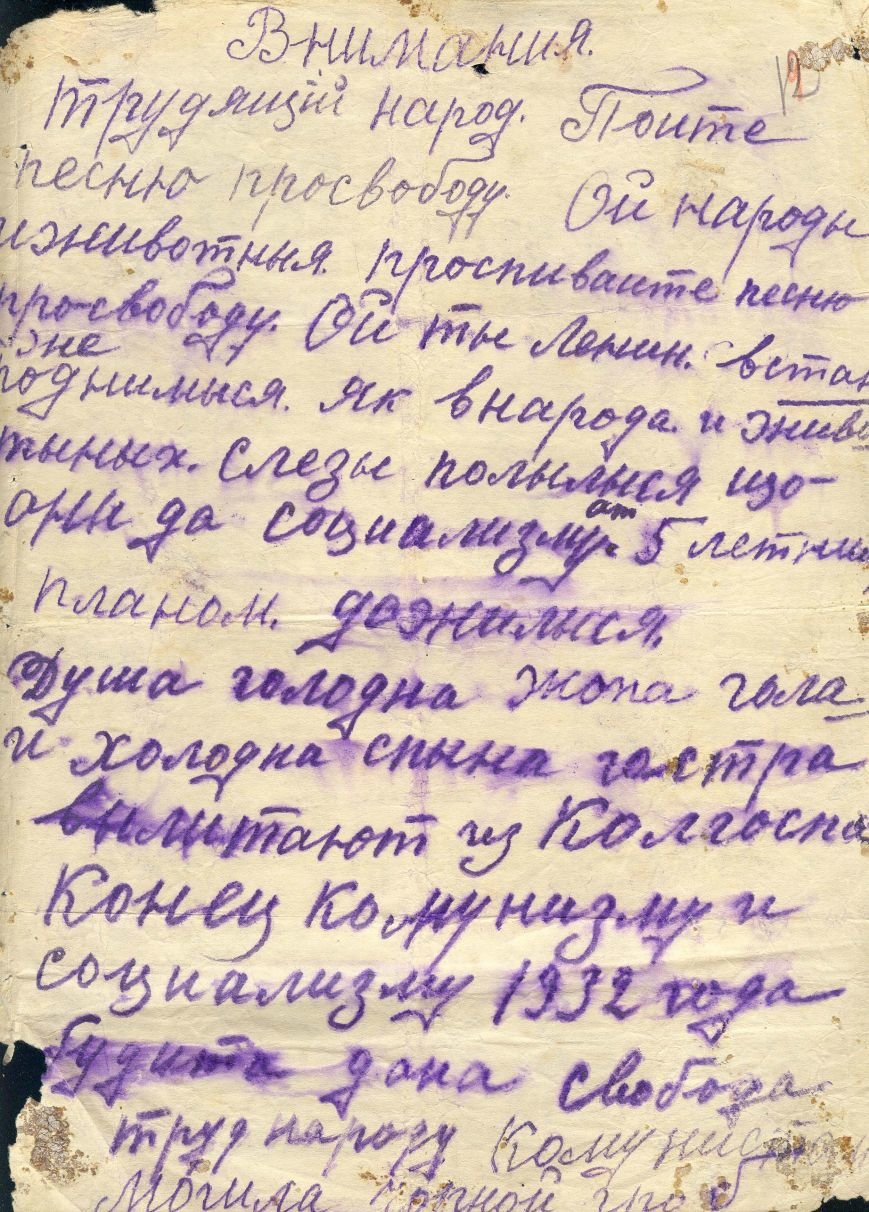 Внимания.
12
трудящій народ. Поите
песню просвободу. Ой народы
иживотныя. проспиваите песню
просвободу. Ой ты Ленин. встань
же
поднимыся. як внарода. и живо
тыных. слезы полылыся що-
ат
оны да социализму. 5 летним
планом. дожилыся.
Душа голодна жопа гола
и холодна спына гостра
вылитают из Колгоспа
Конец Комунизму и
социализму 1932 года
будита дана свобода
труд народу Комунистам
могила чорной гроб